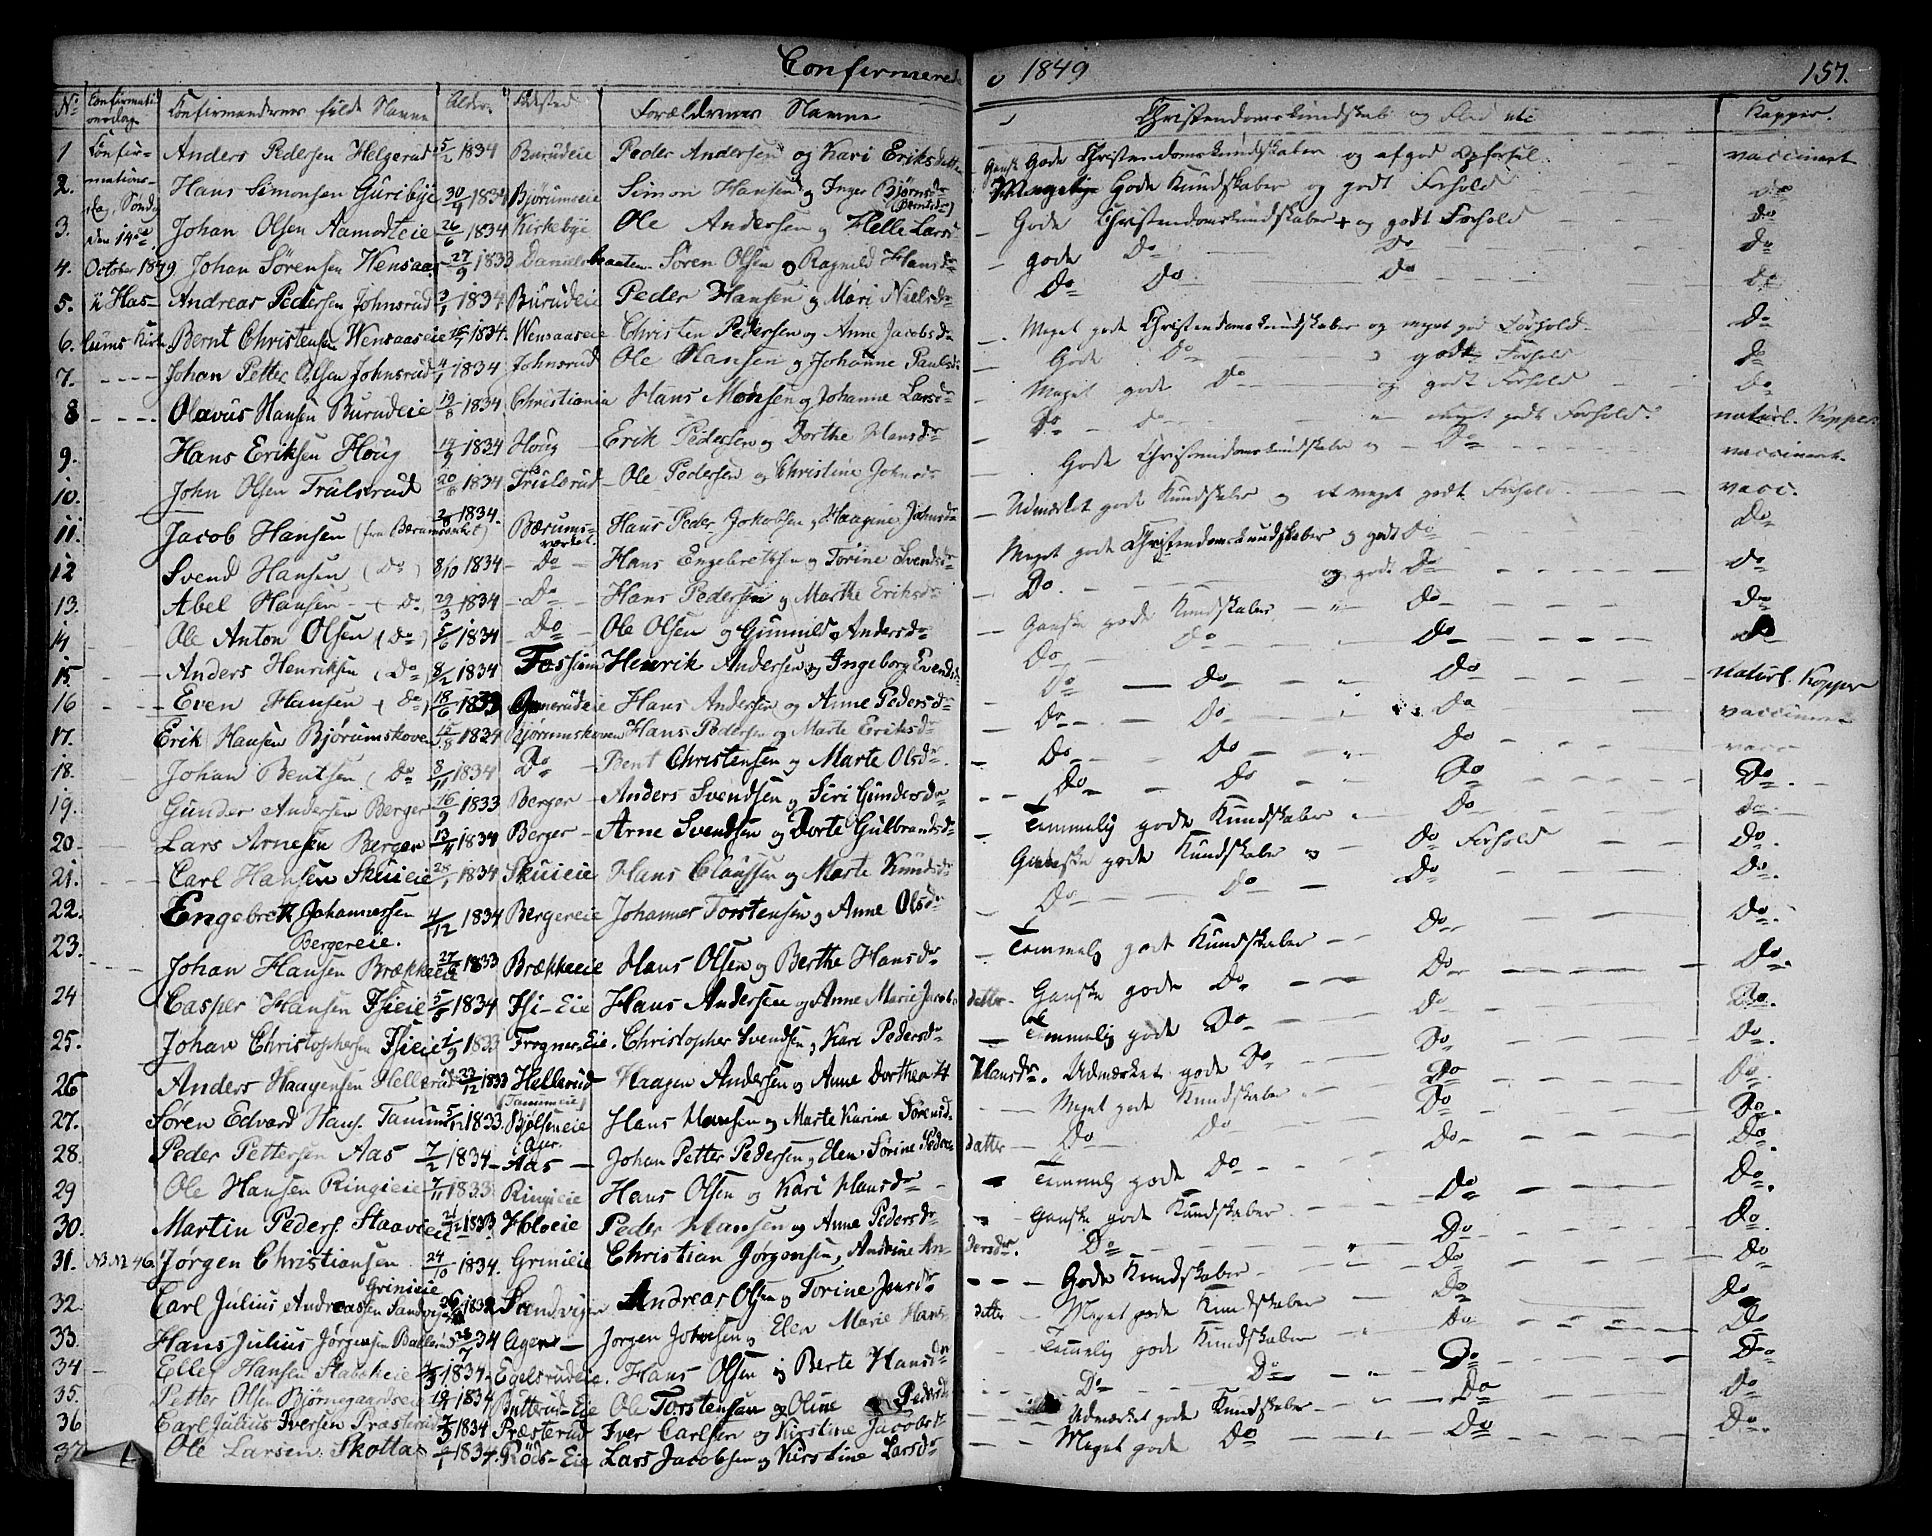 Confirmerede 1849 157.
No Confirmationsdag Konfirmandernes fulde Navne Alder Fødested Forældrenes Navne Christendomskundskab og Flid Kopper.
1 Confir- Anders Pedersen Helgerud 5/2 1834 Burudeie Peder Andersen og Kari Eriksdatter Ganske Gode Christendomskundskaber og vaccineret
2. mations- Hans Simonsen Guribye 30/9 1834 Bjørumseie Simon Hansen og Inger Bjørnsdr (Berntsdr) Gode Kundskaber og godt Forhold Do
3. dag, Søndag den 14de Johan Olsen Aamodteie 26/6 1834 Kirkebye Ole Andersen og Helle Larsdr – Gode Christendomskundskaber + og godt Forhold Do
4. October 1849 Johan Sørensen Wensaas 27/9 1833 Danielsbraaten Søren Olsen og Ragnild Hansdr – gode Do Do Do
5. i Has- Andreas Pedersen Johnsrud 3/1 1834 Burudeie Peder Hansen og Mari Nielsdr Do Do Do Do
6. lums Kirke Bernt Christensen Wensaaseie 1834. Wensaaseie Christen Pedersen og Anne Jacobsdr –. Meget gode Christendomskundskaber og meget god Forhold Do
7. Johan Petter Olsen Johnsrud 4/1 1834 Johnsrud Ole Hansen og Johanne Paulsdr – Gode Do godt Forhold Do
8 Olavus Hansen Burudeie 19/8 1834 Christiania Hans Monsen og Johanne Larsdr – Meget gode Do og godt Forhold Do
9. Hans Eriksen Houg 14/9 1834 Houg Erik Pedersen og Dorthe Hansdr Do Do meget godt Forhold. naturl. Kopper
10. John Olsen Trulsrud 20/8 1834 Trulsrud Ole Pedersen og Christine Johnsdr – Gode Christendomskundskaber og Do vaccineret.
11. Jacob Hansen (fra Bærumsverket) 28/8 1834. Bærumsverket. Hans Peder Jakobsen og Haagine Johnsdr – Udmærket gode Kundskaber og et meget godt Forhold vacc.
12 Svend Hansen (Do) 8/10 1834 Do Hans Engebrethsen og Torine Svendsdr Meget gode Christendomskundskaber og godt Do Do
13. Abel Hansen (Do) 29/3 1834 Do Hans Pedersen og Marthe Eriksdr – Do. og godt Do Do
14 Ole Anton Olsen (Do) 5/6 1834 Do Ole Olsen og Gunnild Andersdr – Ganske gode Kundskaber Do Do
15 Anders Henriksen (Do) 8/2 1834 Fossum Henrik Andersen og Ingeborg Evensdr Do Do Do Do
16 Even Hansen (Do) 18/6 1833 Hans Andersen og Anne Pedersdr Do Do Do naturl. Kopper
17. Erik Hansen Bjørumskoven 15/8 1834 Bjørumskoven Hans Pedersen og Marte Eriksdr Do Do Do vaccineret
18. Johan Bentsen (Do 8/11 1834 Do Bent Christensen og Marte Olsdr. Do Do Do vacc
19. Gunder Andersen Berger 16/9 1833 Berger Anders Svendsen og Siri Gundersdr Do Do Do Do.
20. Lars Arnesen Berger 13/4 1834 Berger Arne Svendsen og Dorte Gulbrandsdr – Temmelig gode Kundskaber Do Do
21. Carl Hansen Skuieie 28/1 1834 Skuieie Hans Claussen og Marte Knudsdr Ganske gode Kundskaber og Do Forhold Do.
22. Engebreth Johannessen Bergereie. 4/12 1834 Bergereie Johannes Torstensen og Anne Olsdr Do Do Do Do.
23. Johan Hansen Brækkeeie 27/6 1833 Brækkeeie Hans Olsen og Berthe Hansdr – Temmelig gode Kundskaber Do Do.
24 Casper Hansen Isieie 5/6 1834 Isi-Eie Hans Andersen og Anne Marie Jacobsdatter – Ganske gode Do Do Do.
25. Johan Christophersen Isieie 1/9 1833 Frogner-Eie. Christopher Svendsen og Kari Pedersdr – Temmelig gode Do Do Do.
26 Anders Haagensen Hellerud 23/12 1833 Hellerud Haagen Andersen og Anne Dorthea Hansdr. Udmærket gode Do Do Do.
27. Søren Edvard Hans. Tanum 5/12 1833. (Tanumeie) Bjølseneie Ager. Hans Hansen og Marte Karine Sørensdr – Meget gode Kundskaber Do Do.
28. Peder Pettersen Aas 7/2 1834 Aas Johan Petter Pedersen og Elen Sørine Pedersdatter Do Do Do Do.
29 Ole Hansen Ringieie 7/11 1833 Ringieie Hans Olsen og Kari Hansdr – Temmelig gode Do Do Do
30. Martin Peders. Staavieie 21/12 1833 Holoeie Peder Hansen og Anne Pedersdr – Ganske gode Kundskaber. Do Do.
31. NB No 46. Jørgen Christiansen Grinieie 24/10 1834. Grinieie Christian Jørgensen, Andrine Andersdr. Do Do Do
32. Carl Julius Andreassen Sandvigen 26 1834 Sandvigen Andreas Olsen og Torine Jensdr – Gode Kundskaber Do Do
33. Hans Julius Jørgensen Ballerud 28/7 34 Ager – Jørgen Johnsen og Elen Marie Hansdatter – Meget gode Kundskaber Do Do
34 – Ellef Hansen Stabekeie 1834 Egelsrudeie. Hans Olsen og Berte Hansdr – Temmelig gode Kundskaber Do Do
35. Petter Olsen Bjørnegaardseie 19/4 1834 Butterud-Eie Ole Torstensen og Oline Pedersdr Do Do Do Do
36 Carl Julius Iversen Præsterud 1834 Præsterud Iver Carlsen og Kirstine Jacobsdr Udmærket gode Kundskaber Do Do
37 Ole Larsen Skottas 1834. Røds-Eie Lars Jacobsen og Kirstine Larsdr – Meget gode Do Do Do